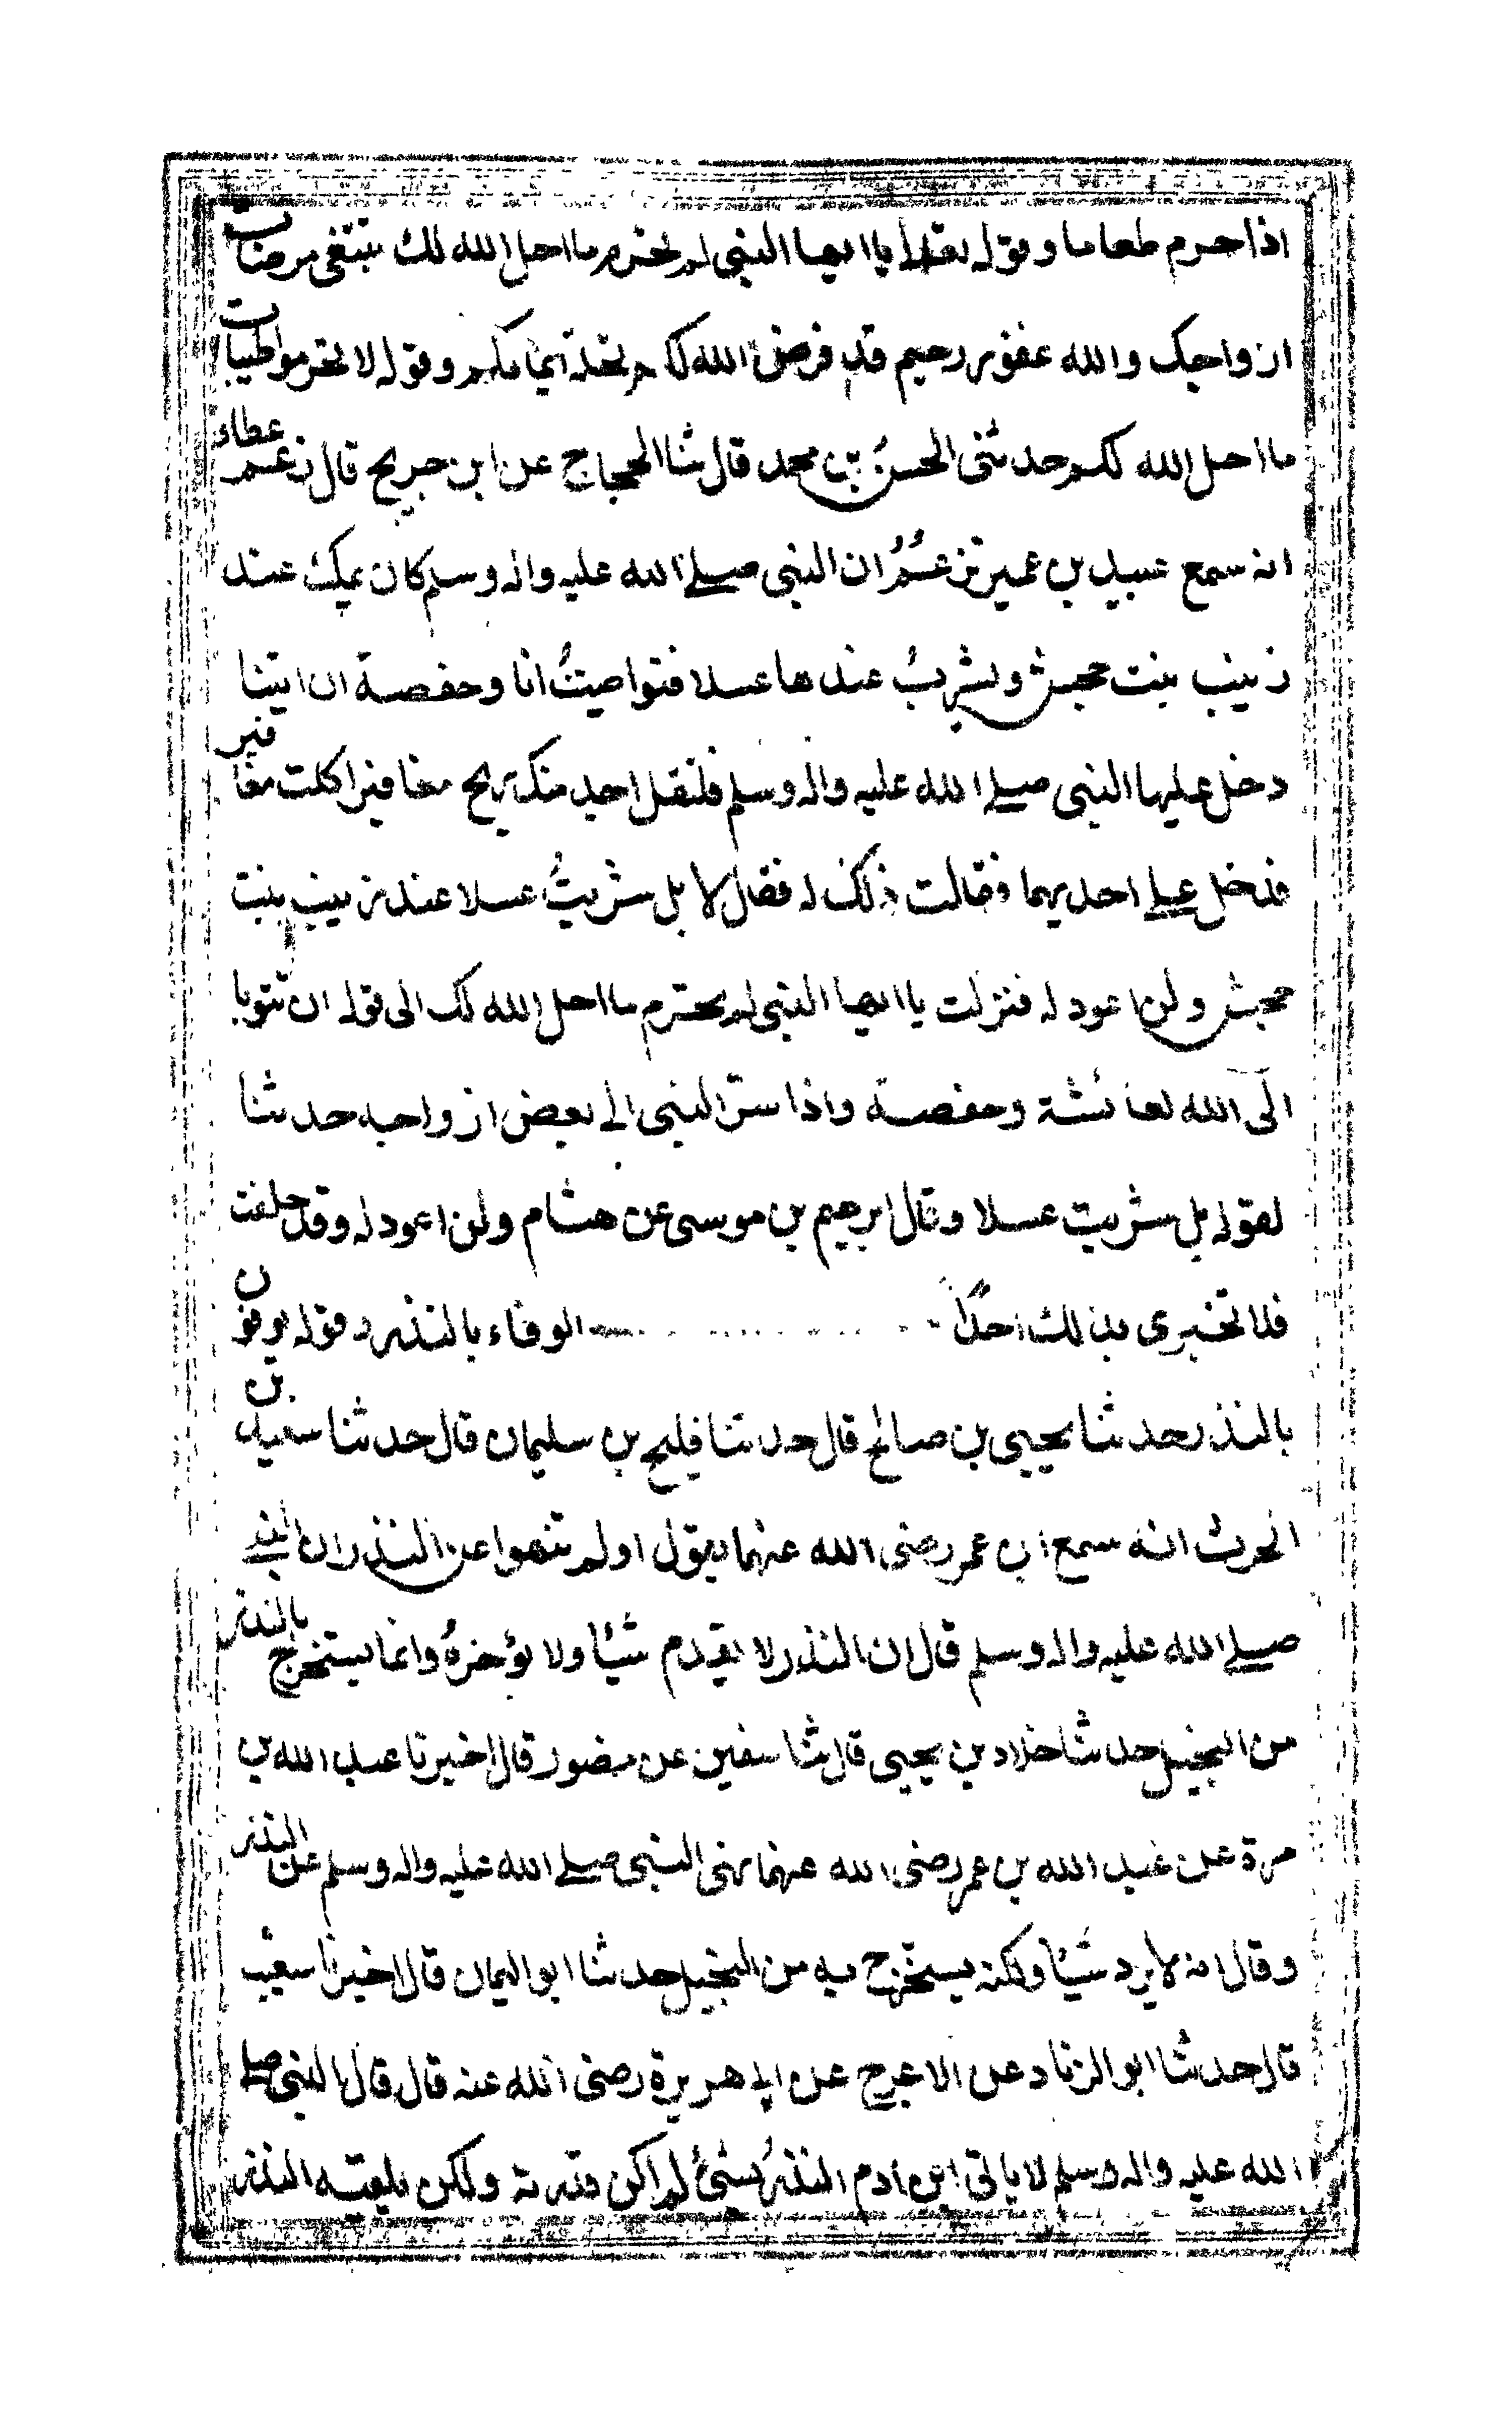 اذا حرم طعاما وقوله تعالى ياايها النبى لم تحرم ما احل الله لك تبتغى مرضات
ازواجك والله غفور رحيم قد فرض الله لكم تحلة ايمانكم وقوله لا تحرموا طيبات
ما احل الله لكم حدثنى الحسن بن محمد قال ثنا الحجاج عن ابن جريج قال زعم عطاء
انه سمع عبيد بن عمير بن عمر ان النبى صلى الله عليه واله وسلم كان يمكث عند
زينب بنت جحش ويشرب عندها عسلا فتواصيت انا وحفصة ان ايتنا
دخل عليها النبى صلى الله عليه واله وسلم فلتقل اجد منك ريح مغافير اكلت مغافير
فدخل على احديهما فقالت ذلك له فقال لا بل شربت عسلا عند زينب بنت
جحش ولن اعود له فنزلت ياايها النبى لم تحرم ما احل الله لك الى قوله ان تتوبا
الى الله لعائشة وحفصة واذا سر النبى الى بعض ازواجه حديثا
لقوله بل شربت عسلا وقال ابرهيم بن موسى عن هشام ولن اعود له وقد حلفت
فلا تخبرى بذلك احدًا الوفاء بالنذر وقوله يوفون
بالنذر حدثنا يحيى بن صالح قال حدثنا فليح بن سليمان قال حدثنا سعيد بن
الحرث انه سمع ابن عمر رضى الله عنهما يقول اولم تنهوا عن النذر ان النبى
صلى الله عليه واله وسلم قال ان النذر لا يقدم شيئا ولا يؤخره وانما يستخرج بالنذر
من البخيل حدثنا خلاد بن يحيى قال ثنا سفين عن منصور قال اخبرنا عبد الله بن
مرة عن عبد الله بن عمر رضى الله عنهما نهى النبى صلى الله عليه واله وسلم عن النذر
وقال انه لا يرد شيئا ولكنه يستخرج به من البخيل حدثنا ابو اليمان قال اخبرنا شعيب
قال حدثنا ابو الزناد عن الاعرج عن ابى هريرة رضى الله عنه قال قال النبى صلى
الله عليه واله وسلم لا ياتى ابن ادم النذر بشئ لم اكن قدرته ولكن يلقيه النذر